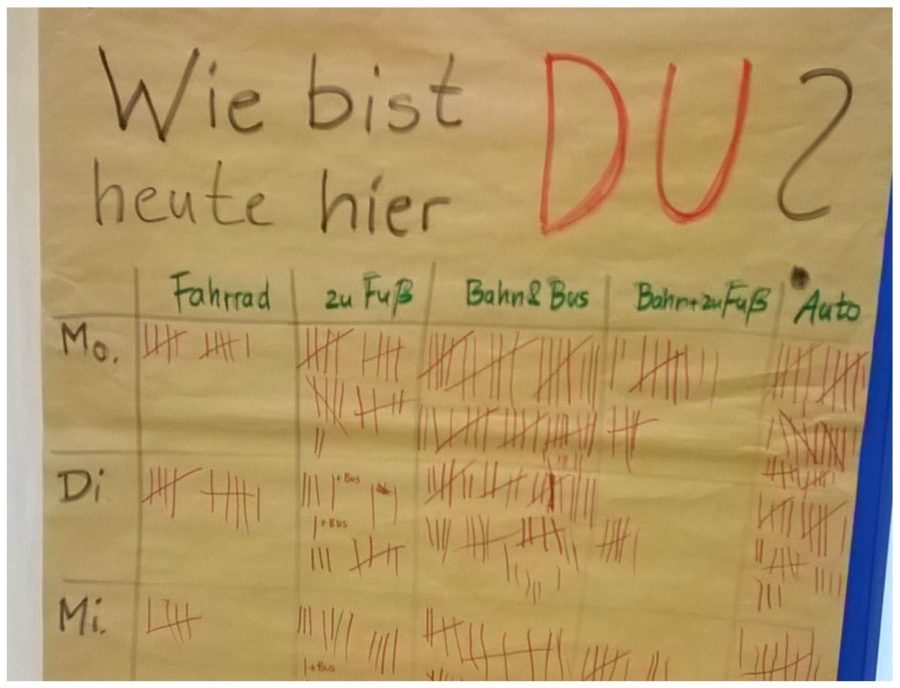 Wie bist DU?
heute hier
Fahrrad zu Fuß Bahn & Bus Bahn + zu Fuß Auto
Mo.
Di
+ Bus
+ Bus
Mi.
+ Bus